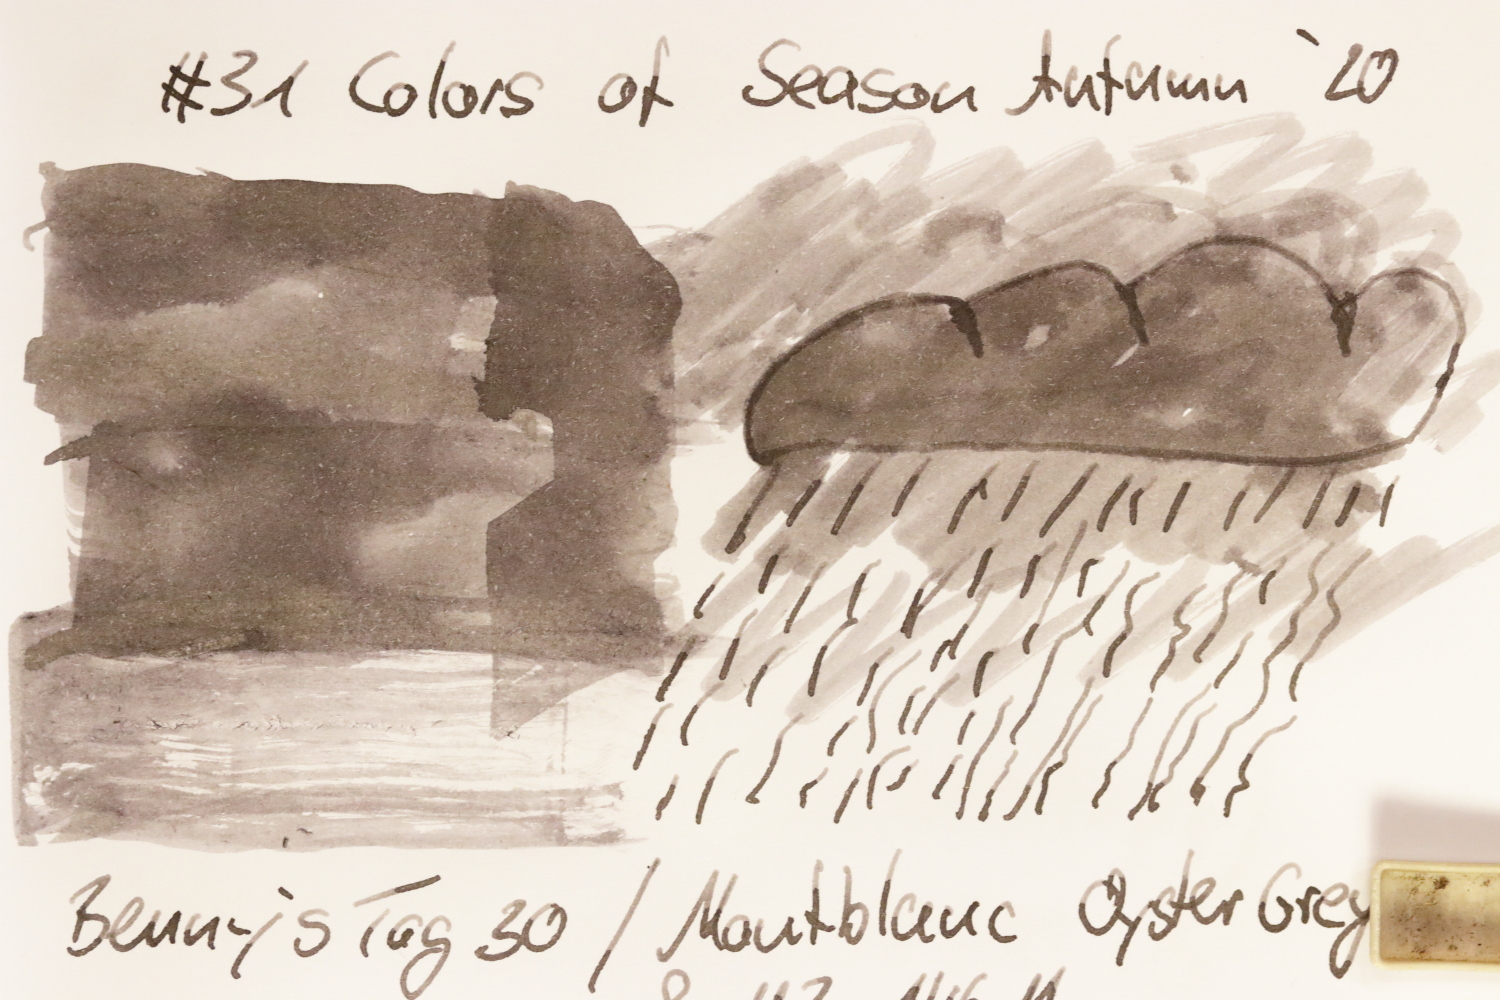 #31 Colors of Season Autumn '20
Benny's Tag 30 / Montblanc Oyster Grey